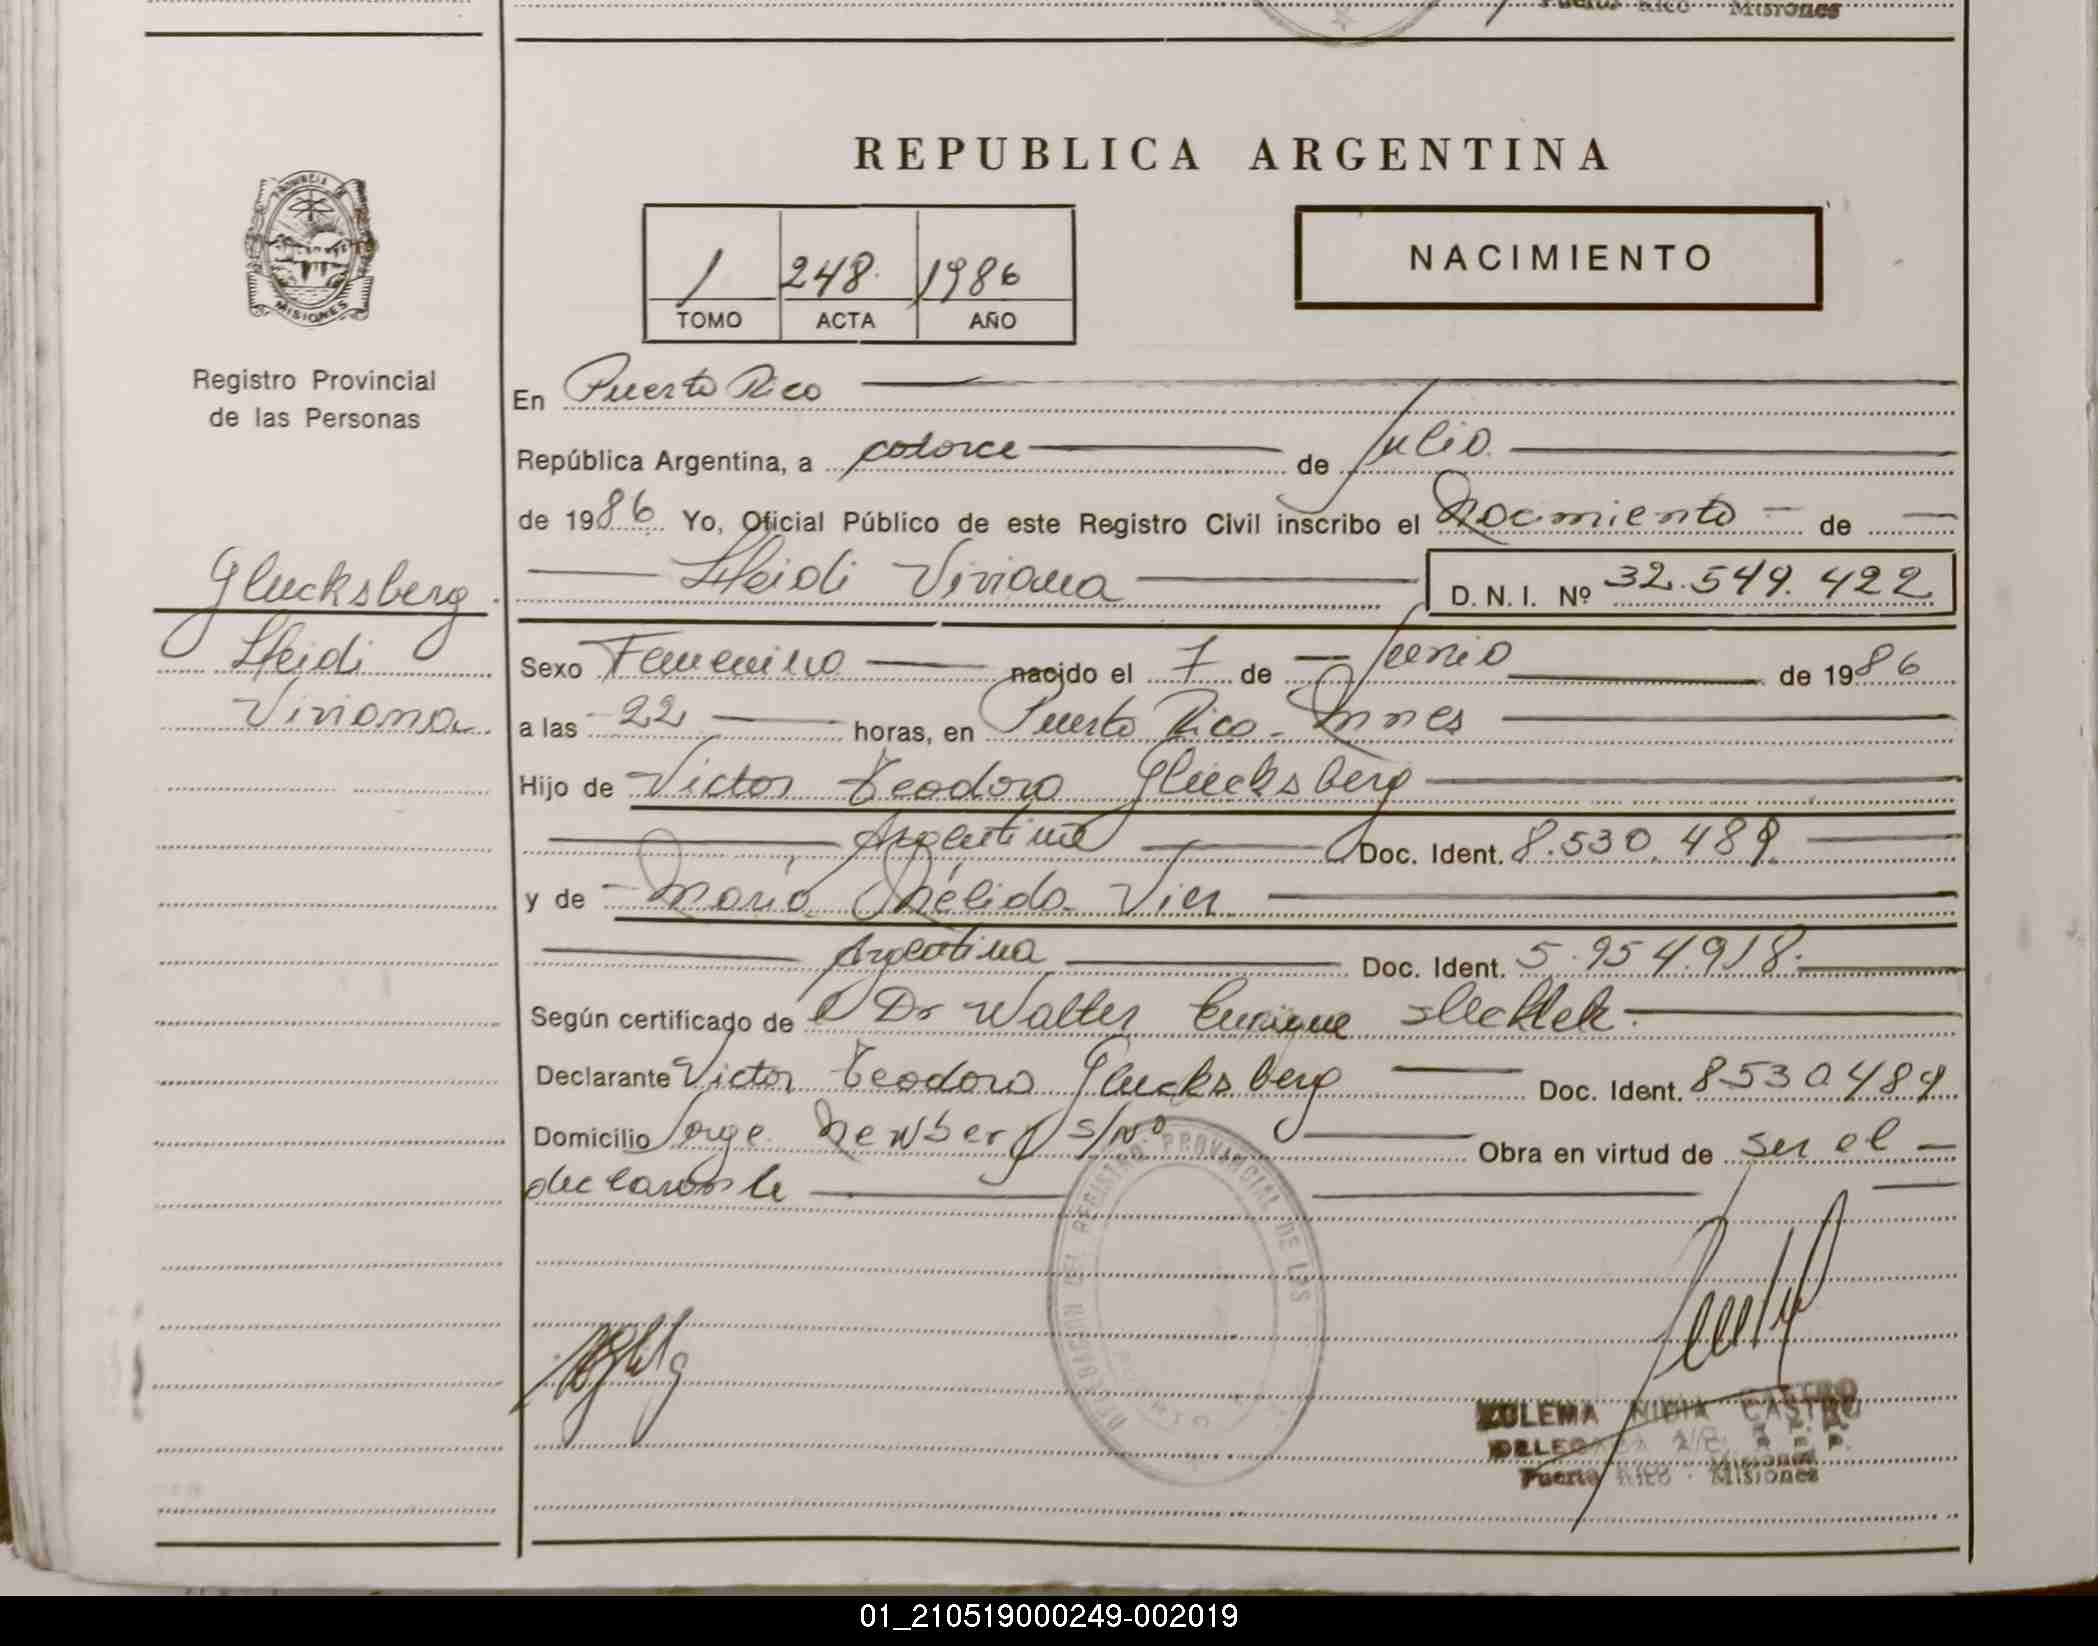 Puerto Rico Misiones
REPUBLICA ARGENTINA
PROVINCIA DE
MISIONES
Registro Provincial
de las Personas
1 248 1986
TOMO ACTA AÑO
NACIMIENTO
Glucksberg
Heidi
Viviana
En Puerto Rico
República Argentina, a catorce de Julio
de 1986 Yo, Oficial Público de este Registro Civil inscribo el Nacimiento de
Heidi Viviana D. N. I. Nº 32.549.422
Sexo Femenino nacido el 7 de Junio de 1986
a las 22 horas, en Puerto Rico - Mnes
Hijo de Victor Teodoro Glucksberg
Argentina Doc. Ident. 8.530.489
y de María Nélida Vier
Argentina Doc. Ident. 5.954.918.
Según certificado de Dr Walter Enrique
Declarante Victor Teodoro Glucksberg Doc. Ident. 8530489
Domicilio Jorge Newbery s/nº Obra en virtud de ser el
declarante
DELEGACION DEL REGISTRO PROVINCIAL DE LAS
ZULEMA NIDIA CASTRO
Puerto Rico - Misiones
01_210519000249-002019